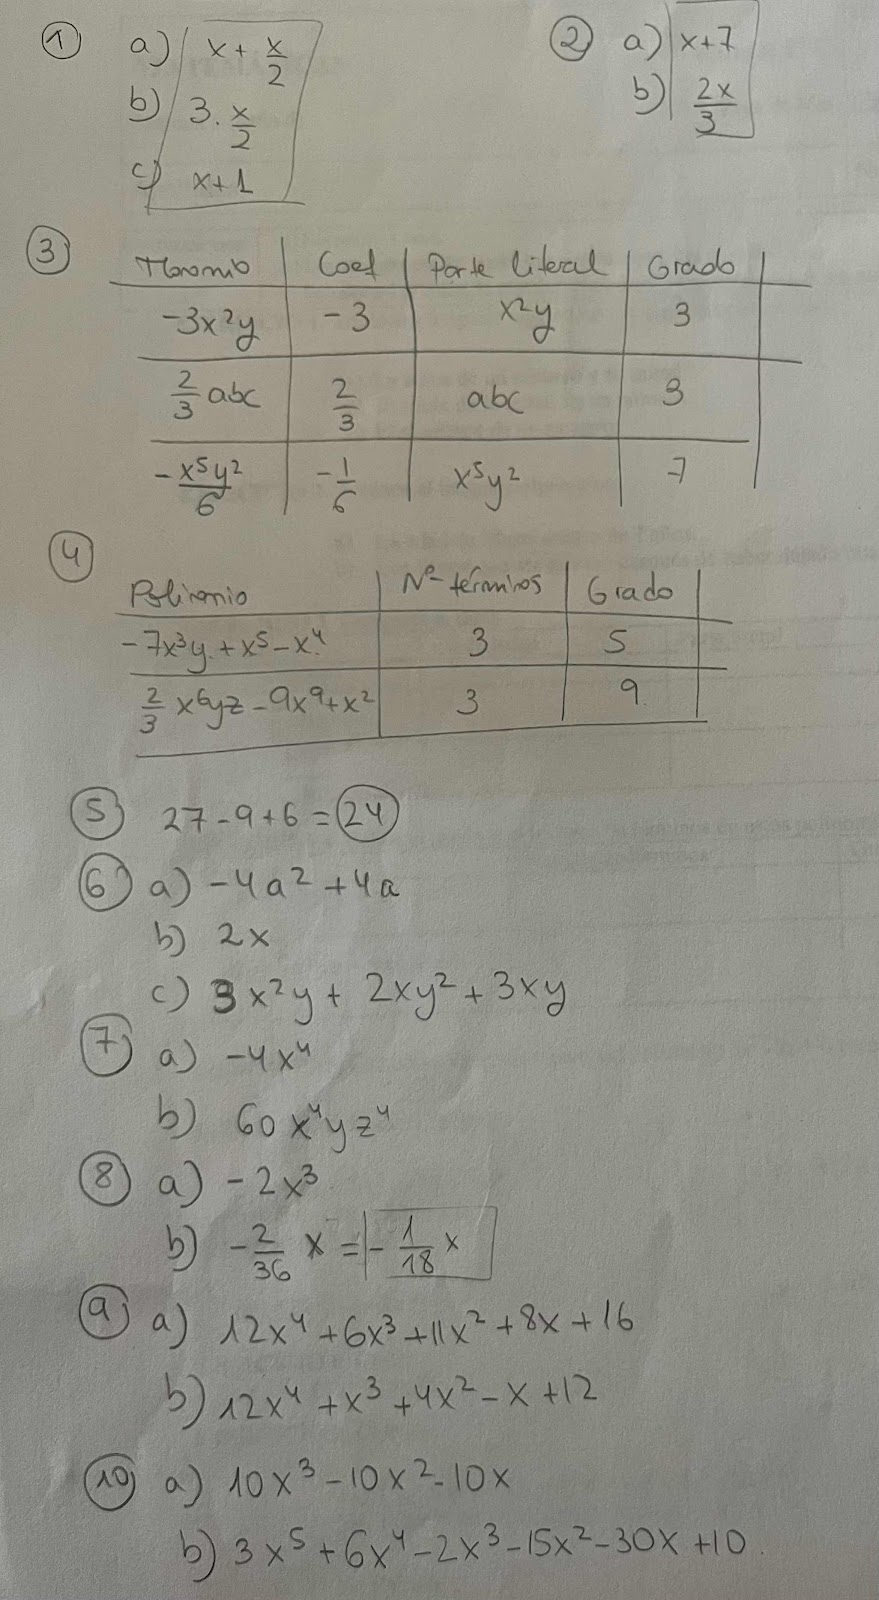 1 a) x + x/2
b) 3 · x/2
c) x+1
2 a) x+7
b) 2x/3
3 Monomio | Coef | Parte literal | Grado
-3x²y | -3 | x²y | 3
2/3 abc | 2/3 | abc | 3
-x⁵y²/6 | -1/6 | x⁵y² | 7
4 Polinomio | Nº términos | Grado
-7x³y + x⁵ - x⁴ | 3 | 5
2/3 x⁶yz - 9x⁹ + x² | 3 | 9
5 27 - 9 + 6 = 24
6 a) -4a² + 4a
b) 2x
c) 3x²y + 2xy² + 3xy
7 a) -4x⁴
b) 60x⁴yz⁴
8 a) -2x³
b) -2/36 x = -1/18 x
9 a) 12x⁴ + 6x³ + 11x² + 8x + 16
b) 12x⁴ + x³ + 4x² - x + 12
10 a) 10x³ - 10x² - 10x
b) 3x⁵ + 6x⁴ - 2x³ - 15x² - 30x + 10